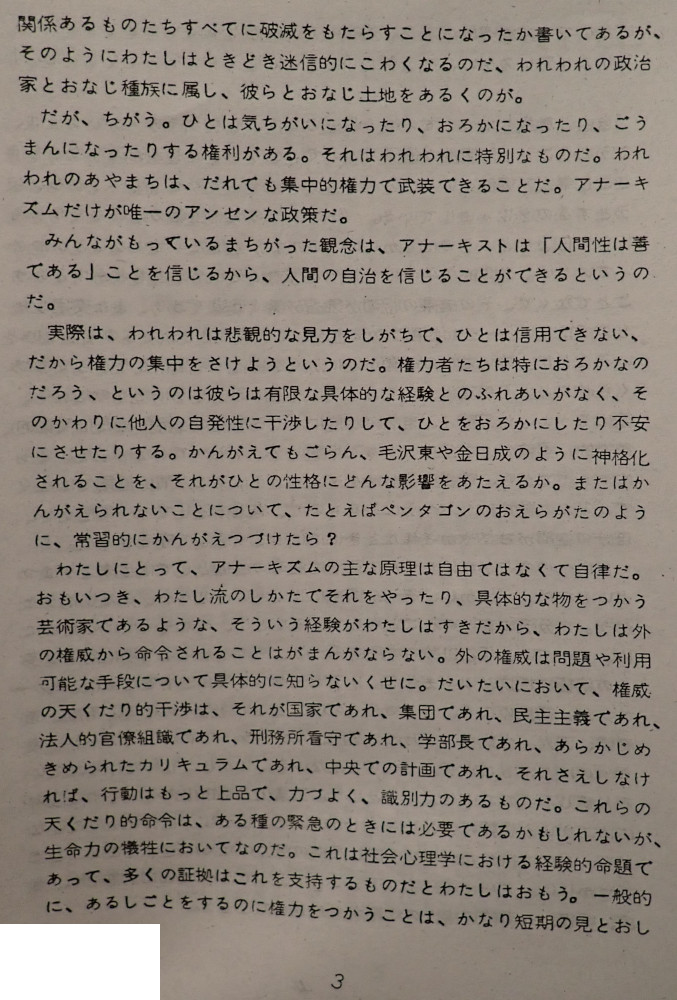 関係あるものたちすべてに破滅をもたらすことになったか書いてあるが、
そのようにわたしはときどき迷信的にこわくなるのだ、われわれの政治
家とおなじ種族に属し、彼らとおなじ土地をあるくのが。
だが、ちがう。ひとは気ちがいになったり、おろかになったり、ごう
まんになったりする権利がある。それはわれわれに特別なものだ。われ
われのあやまちは、だれでも集中的権力で武装できることだ。アナーキ
ズムだけが唯一のアンゼンな政策だ。
みんながもっているまちがった観念は、アナーキストは「人間性は善
である」ことを信じるから、人間の自治を信じることができるというの
だ。
実際は、われわれは悲観的な見方をしがちで、ひとは信用できない、
だから権力の集中をさけようというのだ。権力者たちは特におろかなの
だろう、というのは彼らは有限な具体的な経験とのふれあいがなく、そ
のかわりに他人の自発性に干渉したりして、ひとをおろかにしたり不安
にさせたりする。かんがえてもごらん、毛沢東や金日成のように神格化
されることを、それがひとの性格にどんな影響をあたえるか。またはか
んがえられないことについて、たとえばペンタゴンのおえらがたのよう
に、常習的にかんがえつづけたら？
わたしにとって、アナーキズムの主な原理は自由ではなくて自律だ。
おもいつき、わたし流のしかたでそれをやったり、具体的な物をつかう
芸術家であるような、そういう経験がわたしはすきだから、わたしは外
の権威から命令されることはがまんがならない。外の権威は問題や利用
可能な手段について具体的に知らないくせに。だいたいにおいて、権威
の天くだり的干渉は、それが国家であれ、集団であれ、民主主義であれ、
法人的官僚組識であれ、刑務所看守であれ、学部長であれ、あらかじめ
きめられたカリキュラムであれ、中央での計画であれ、それさえしなけ
れば、行動はもっと上品で、力づよく、識別力のあるものだ。これらの
天くだり的命令は、ある種の緊急のときには必要であるかもしれないが、
生命力の犠牲においてなのだ。これは社会心理学における経験的命題で
あって、多くの証拠はこれを支持するものだとわたしはおもう。一般的
に、あるしごとをするのに権力をつかうことは、かなり短期の見とおし
3